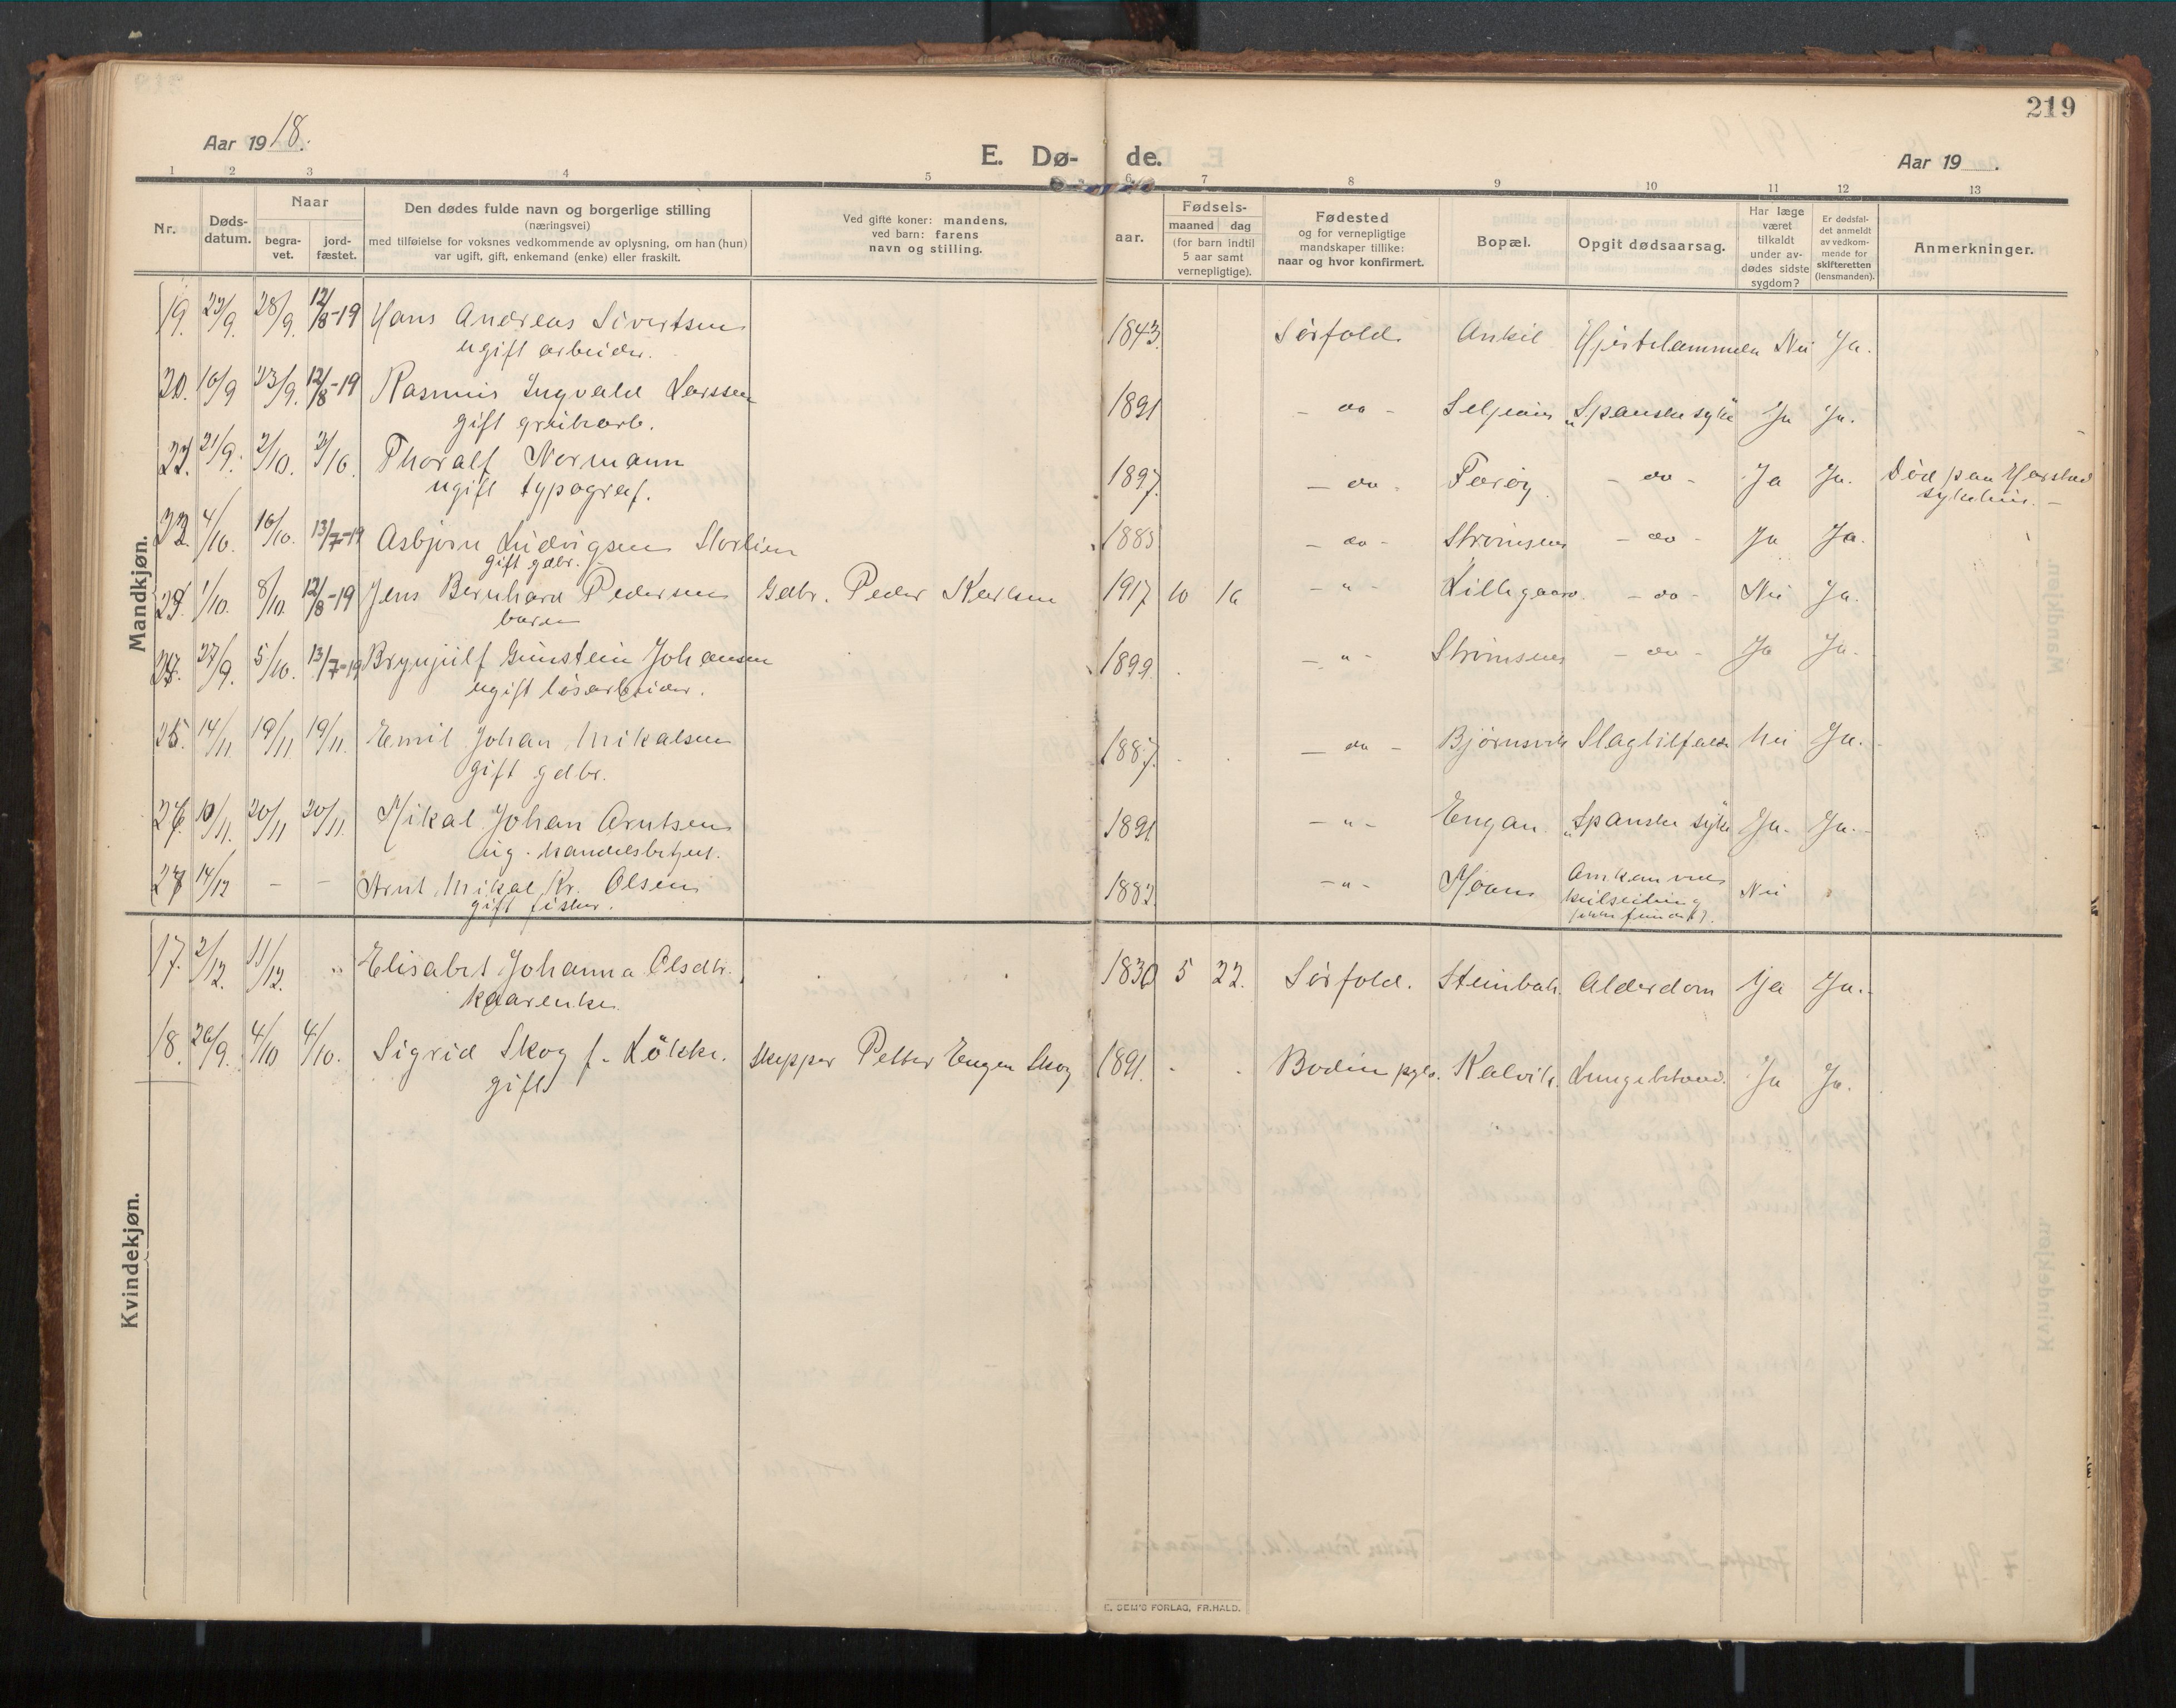 219
Aar 1918.
E. Dø- de.
Aar 19 .
1 2 3 4 5 6 7 8 9 10 11 12 13
Nr.
Døds-
datum.
Naar
begra-
vet.
jord-
fæstet.
Den dødes fulde navn og borgerlige stilling
(næringsvei)
med tilføielse for voksnes vedkommende av oplysning, om han (hun)
var ugift, gift, enkemand (enke) eller fraskilt.
Ved gifte koner: mandens,
ved barn: farens
navn og stilling.
Fødsels-
aar.
maaned dag
(for barn indtil
5 aar samt
vernepligtige).
Fødested
og for vernepligtige
mandskaper tillike:
naar og hvor konfirmert.
Bopæl.
Opgit dødsaarsag.
Har læge
været
tilkaldt
under av-
dødes sidste
sygdom?
Er dødsfal-
det anmeldt
av vedkom-
mende for
skifteretten
(lensmanden).
Anmerkninger.
Mandkjøn.
19. 23/9. 28/9. 12/8-19 Hans Andreas Sivertsen 1843. Sørfold. Ankil Hjertelammelse Nei Ja.
ugift arbeider.
20. 16/9 23/9. 12/8-19 Rasmus Ingvald Larssen 1891 - do - „Spanske syke“ Ja Ja.
gift grubearb.
21/9. 2/10. 2/10. Thoralf Normann 1897. - do - Færøy - do - Ja Ja. Död paa Harstad
ugift typograf. sykehus. -
4/10. 10/10. 13/7-19 Asbjørn Ludvigsen Storlien 1885 - do - Strømsnes - do - Ja Ja.
gift gdbr.
1/10. 8/10. 12/8-19 Jens Bernhard Pedersen Gdbr. Peder Karlsen 1917 10 16 - " - Lillegaard. - do - Nei Ja.
barn
27/9. 5/10. 13/7-19 Brynjulf Gunstein Johansen 1899. - " - Strømsnes - do - Ja Ja.
ugift løsarbeider.
25. 14/11. 19/11 19/11. Emil Johan Mikalsen 1887. - do - Bjørnsvik Slagtilfælde Nei Ja.
gift gdbr.
26. 10/11. 20/11 20/11. Mikal Johan Arntsen 1891 - " - Engan. „Spanske syke Ja. Ja.
ug. handelsbetjent.
27 14/12 - - Arnt Mikal Kr. Olsen 1882. - " - Moan Omkom ved Nei
gift fisker. kulseiling
Kvindekjøn.
17. 2/12. 11/12. " Elisabet Johanna Olsdtr. 1830 5 22. Sørfold. Steinbak. Alderdom Ja Ja.
kaarenke.
18. 26/9. 4/10 4/10. Sigrid Skog f. Løkke. Skipper Petter Eugen Skog 1891. Bodin pgld. Kalvik. Lungebetænd. Ja Ja.
gift
E. SEM'S FORLAG, FR.HALD.